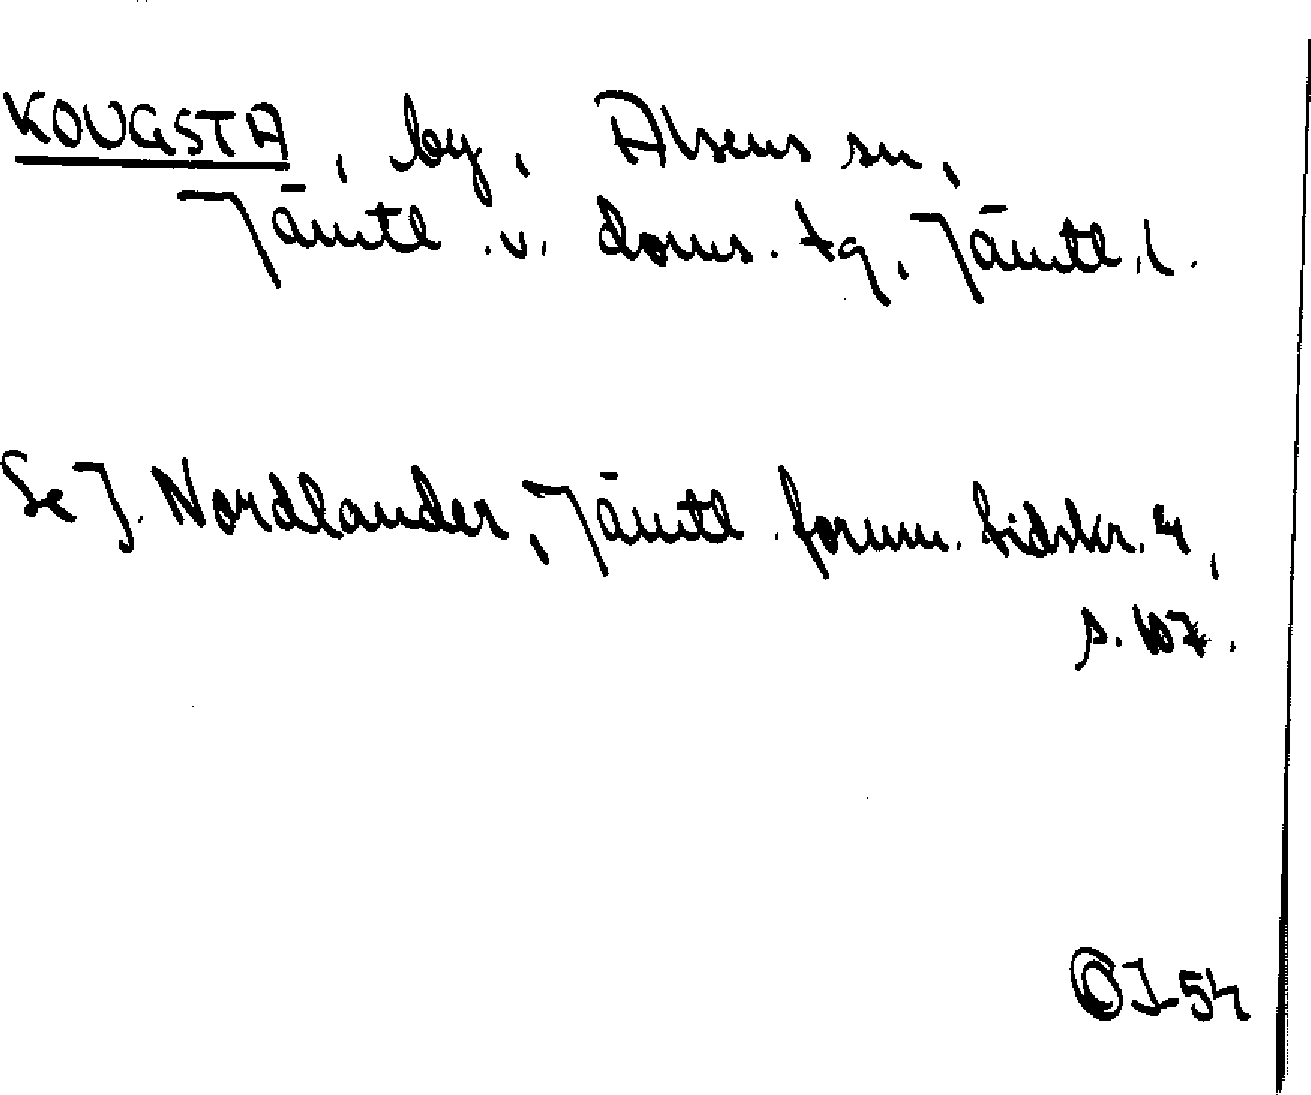 KOUGSTA, by, Alsens sn,
Jämtl. v. doms. tg, Jämtl. l.
Se J. Nordlander, Jämtl. fornm. tidskr. 4,
s. 107.